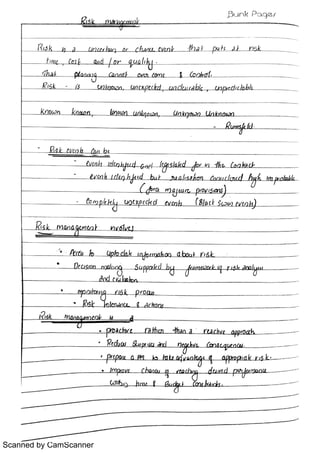 Bunk Pages
Risk management
Risk is a uncertain or chance event that puts at risk
time, cost and / or quality.
That planning cannot over come & control.
Risk - is unknown, unexpected, undesirable, unpredictable
known known, known unknown, unknown unknown
- Rumsfeld
Risk events can be
- events identified and legislated for in the contract
- event identified but realisation considered high improbable
(force majeure provisions)
- Completely unexpected events (Black swan events)
Risk management involves
Access to upto date information about risk
Decision making supported by framework of risk analysis
and evaluation
monitoring risk process
Risk tolerance & Actions
Risk management is a
proactive rather than a reactive approach
Reduce surprises and negative consequences
prepare a PM to take advantage of appropriate risk.
Improve chances of reaching desired performance
within time & Budget constraints.
Scanned by CamScanner